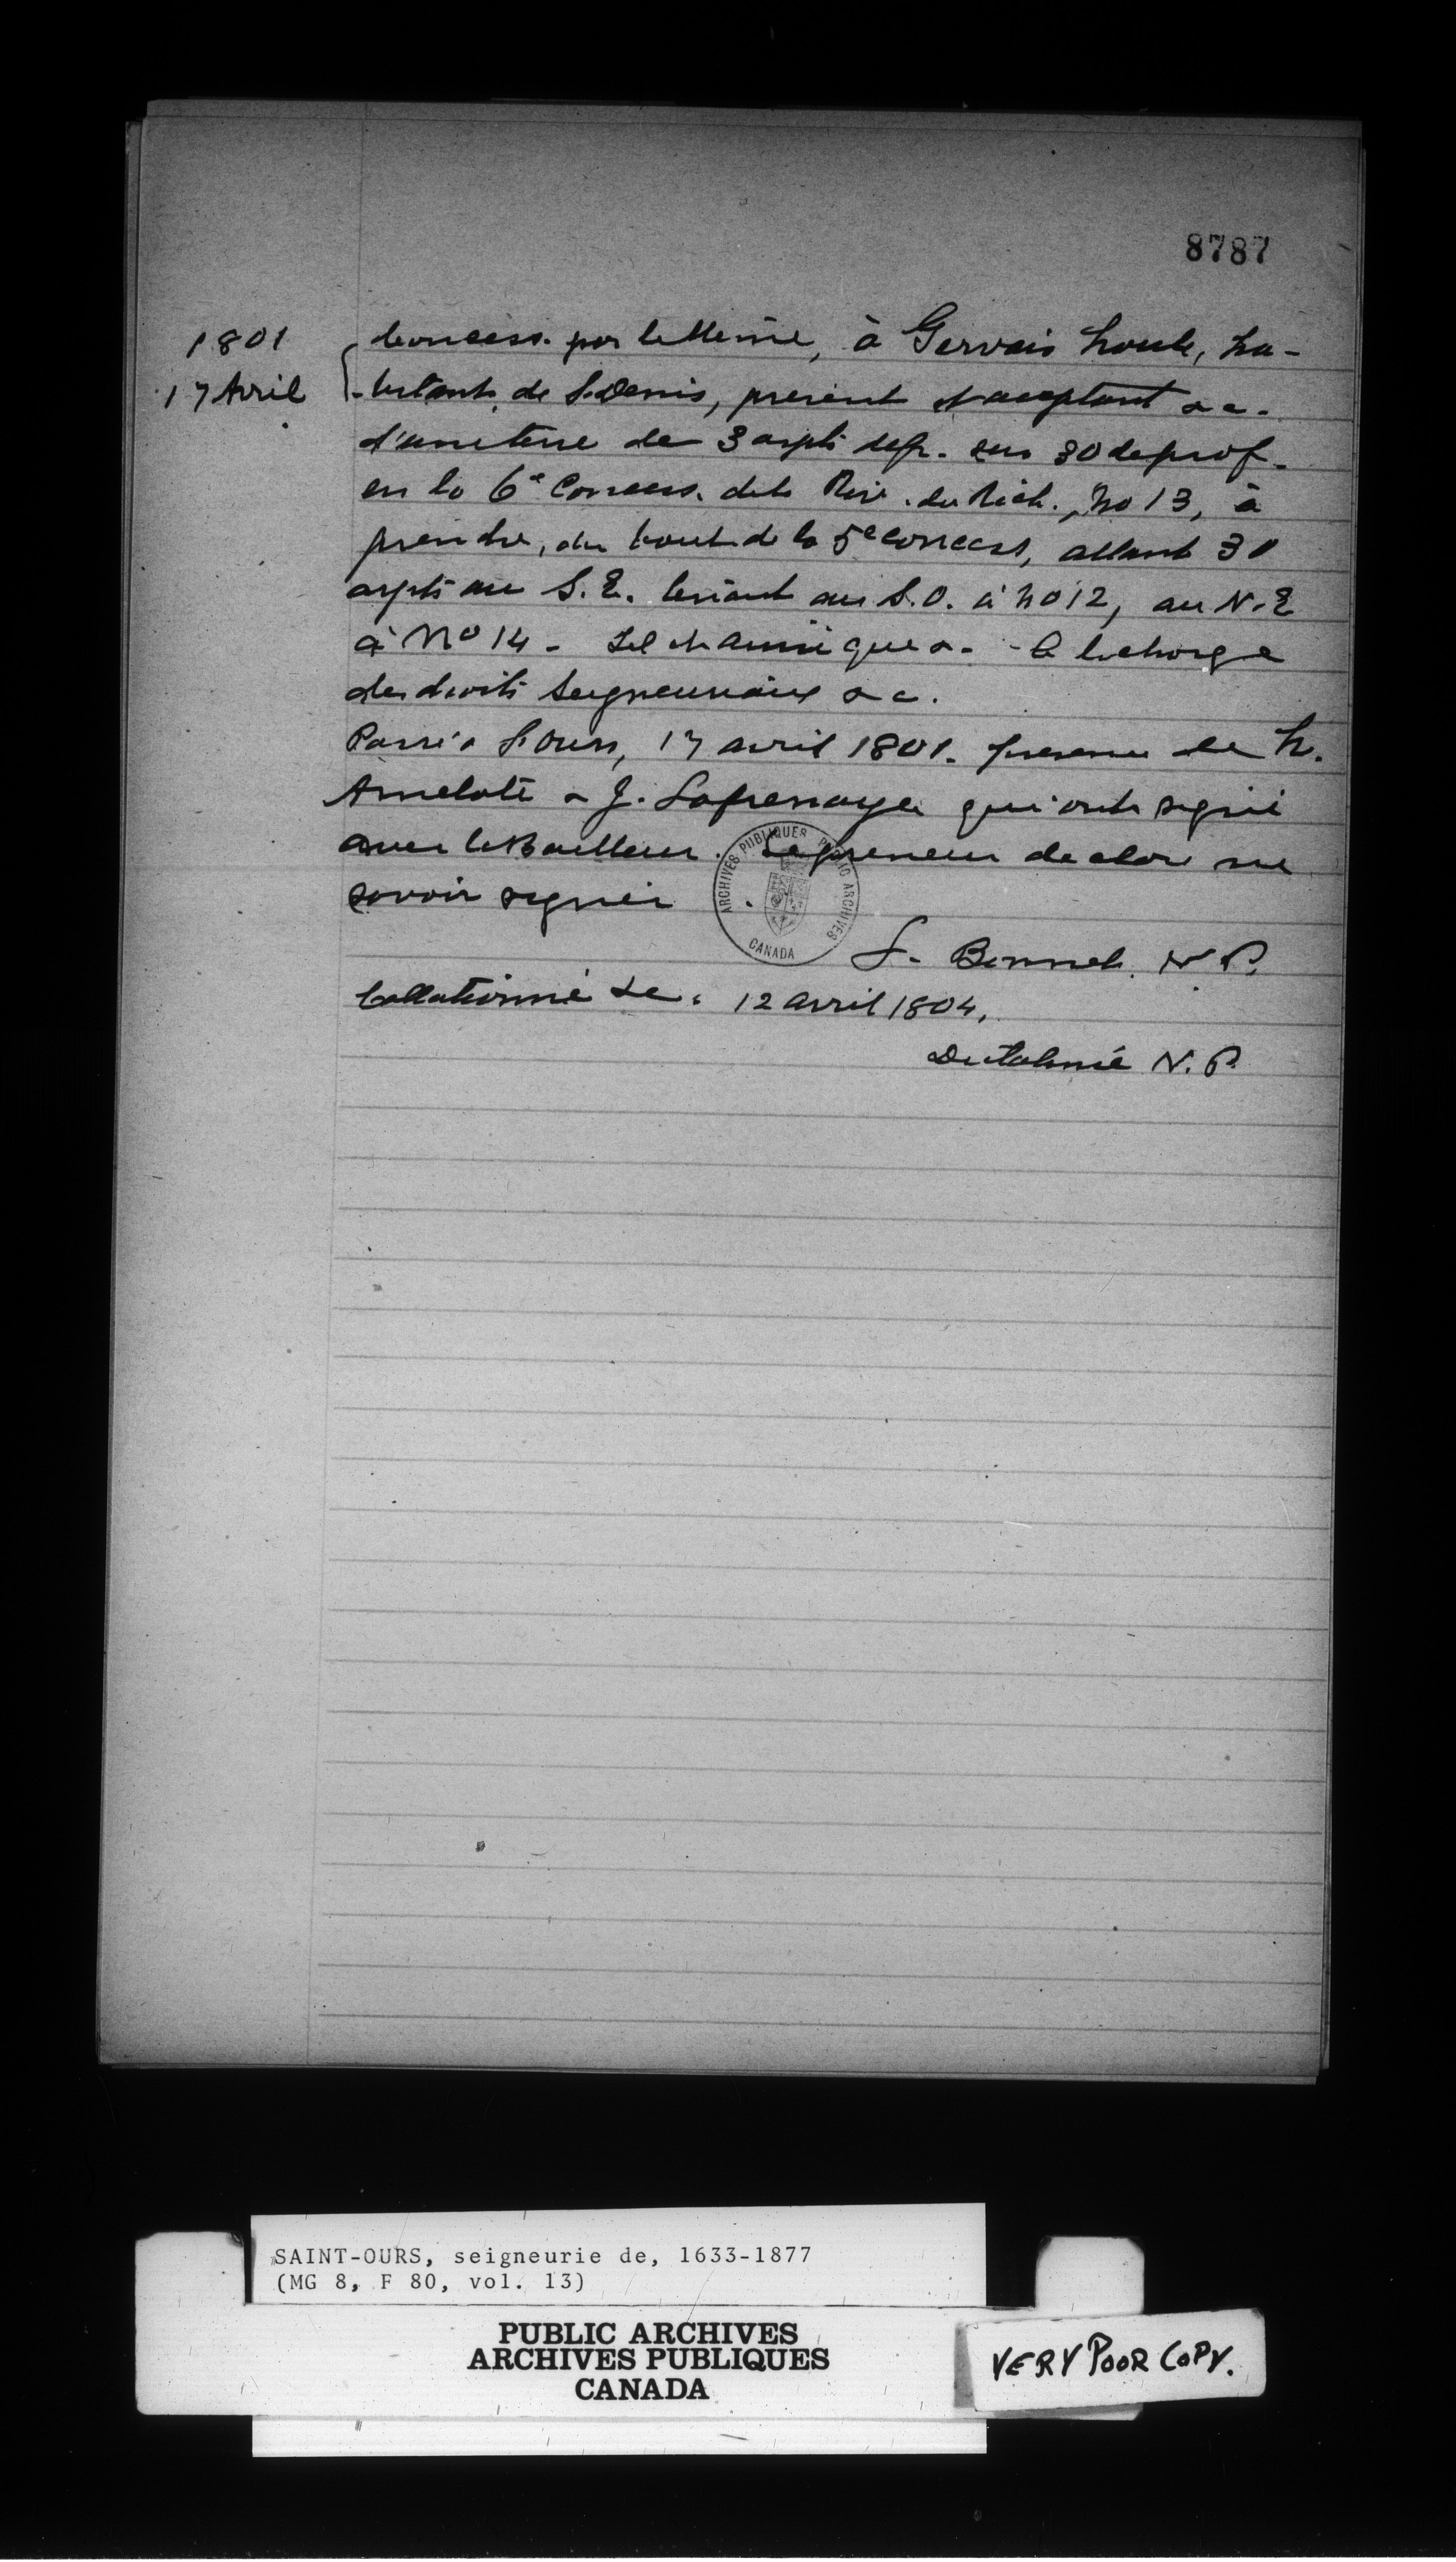 8787
1801
17 Avril
Concess. par le Même, à Gervais Houle, ha-
bitant, de S. Denis, présent et acceptant &c.
d'une terre de 3 arpts de fr. sur 30 de prof.
en la 6e Concess. de la Riv. du Rich., No 13, à
prendre, au bout de la 5e concess, allant 30
arpts au S.E. tenant au S.O. à No 12, au N.E
à No 14 - Tel et ainsi que &. - A la charge
des droits Seigneuriaux &c.
Passé à S. Ours, 17 avril 1801. présence de H.
Amelotte & J. Lafrenaye qui ont signé
avec le Bailleur. Le preneur déclare ne
savoir signer
ARCHIVES PUBLIQUES PUBLIC ARCHIVES
CANADA
N.P.
Collationné le. 12 avril 1804.
N.P.
SAINT-OURS, seigneurie de, 1633-1877
(MG 8, F 80, vol. 13)
PUBLIC ARCHIVES
ARCHIVES PUBLIQUES
CANADA
VERY POOR COPY.